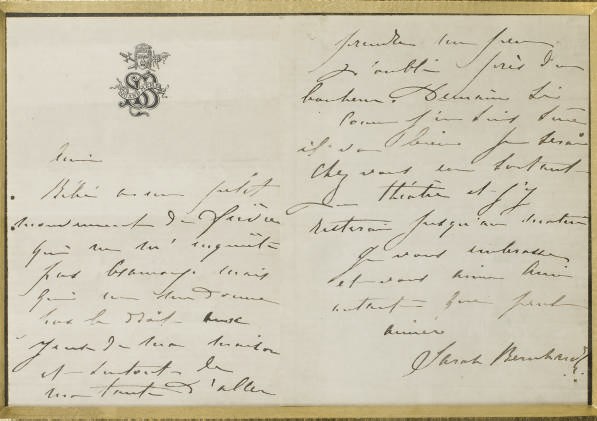 Amie
Bébé a un petit
mouvement de fièvre
qui ne m'inquiète
pas beaucoup mais
qui me donne
pas le droit aux
yeux de ma maison
et surtout de
ma tante d'aller
prendre un peu
d'oubli près d'un
bonheur. Demain si
comme j'en suis sûre
il va bien je serai
chez vous en sortant
du théâtre et j'y
resterai jusqu'au matin
Je vous embrasse
et vous aime Amie
autant que peut
aimer
Sarah Bernhardt